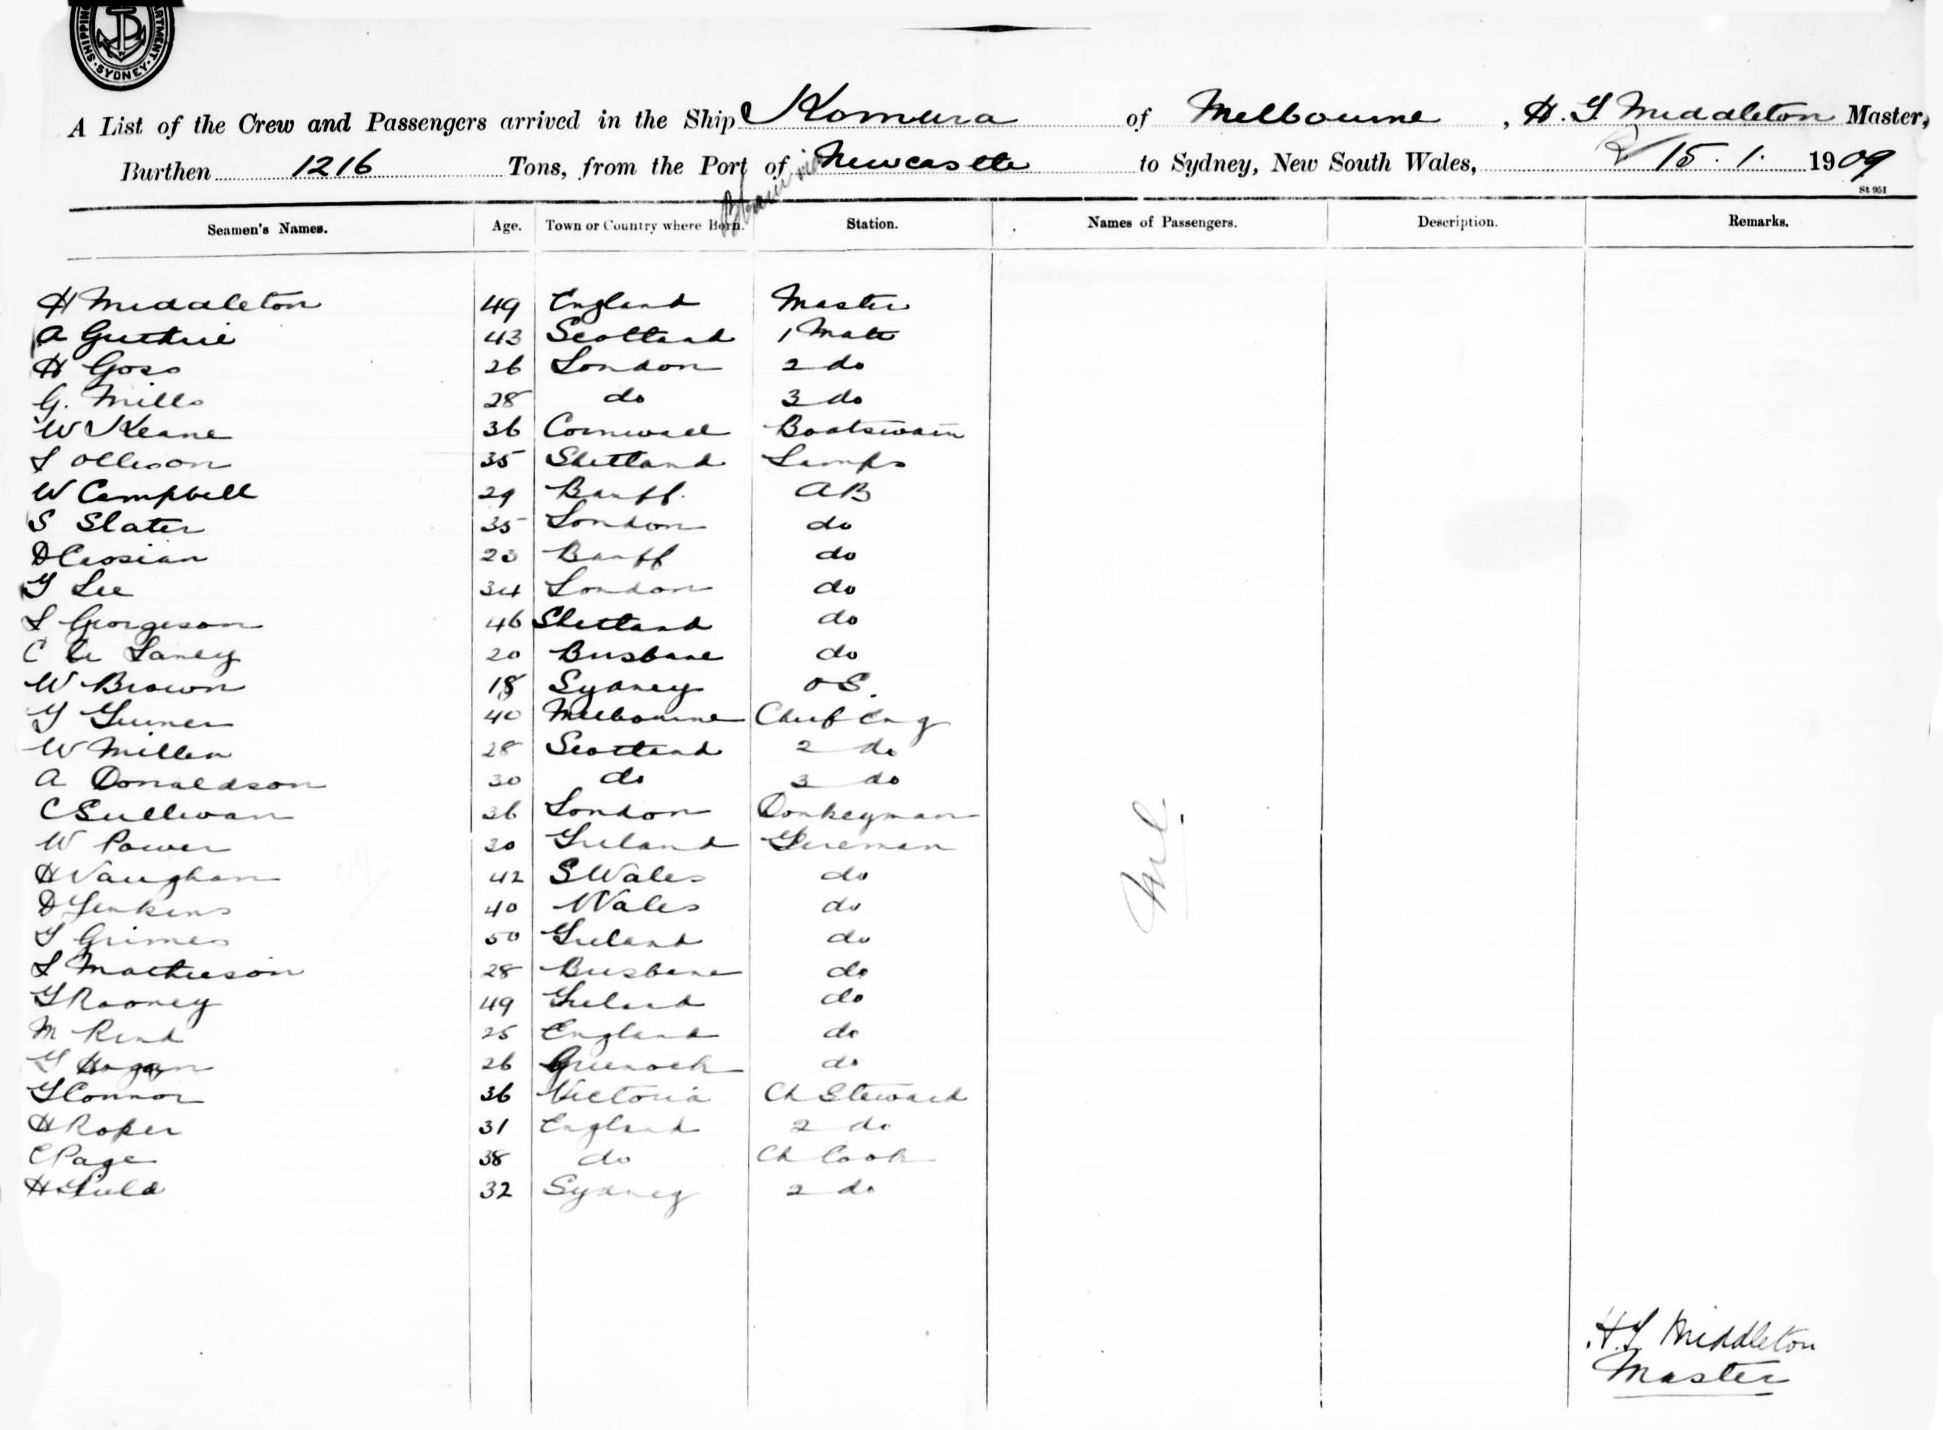 SHIPPING DEPARTMENT · SYDNEY ·
A List of the Crew and Passengers arrived in the Ship Komura of Melbourne, H. T Middleton Master,
Burthen 1216 Tons, from the Port of Newcastle to Sydney, New South Wales, 15 . 1 . 1909
via
St 951
Seamen's Names. Age. Town or Country where Born. Station. Names of Passengers. Description. Remarks.
H Middleton 49 England Master
A Guthrie 43 Scotland 1 Mate
H Goss 26 London 2 do
G. Mills 28 do 3 do
W Keane 36 Cornwall Boatswain
L Ollison 35 Shetland Lamps
W Campbell 29 Banff. AB
S Slater 35 London do
D 23 Banff do
Lee 34 London do
L Georgeson 46 Shetland do
C 20 Brisbane do
W Brown 18 Sydney OS.
40 Melbourne Chief Eng
W Miller 28 Scotland 2 do
A Donaldson 30 do 3 do
C Sullivan 36 London Donkeyman
W Power 30 Ireland Fireman
H Vaughan 42 S Wales do
D Jenkins 40 Wales do
Grimes 50 Ireland do
L Mathieson 28 Brisbane do
Rooney 49 Ireland do
M 25 England do
26 Greenock do
Connor 36 Victoria Ch Steward
H Roper 31 England 2 do
C Page 38 do Ch Cook
H Field 32 Sydney 2 do
Nil.
H. T. Middleton
Master